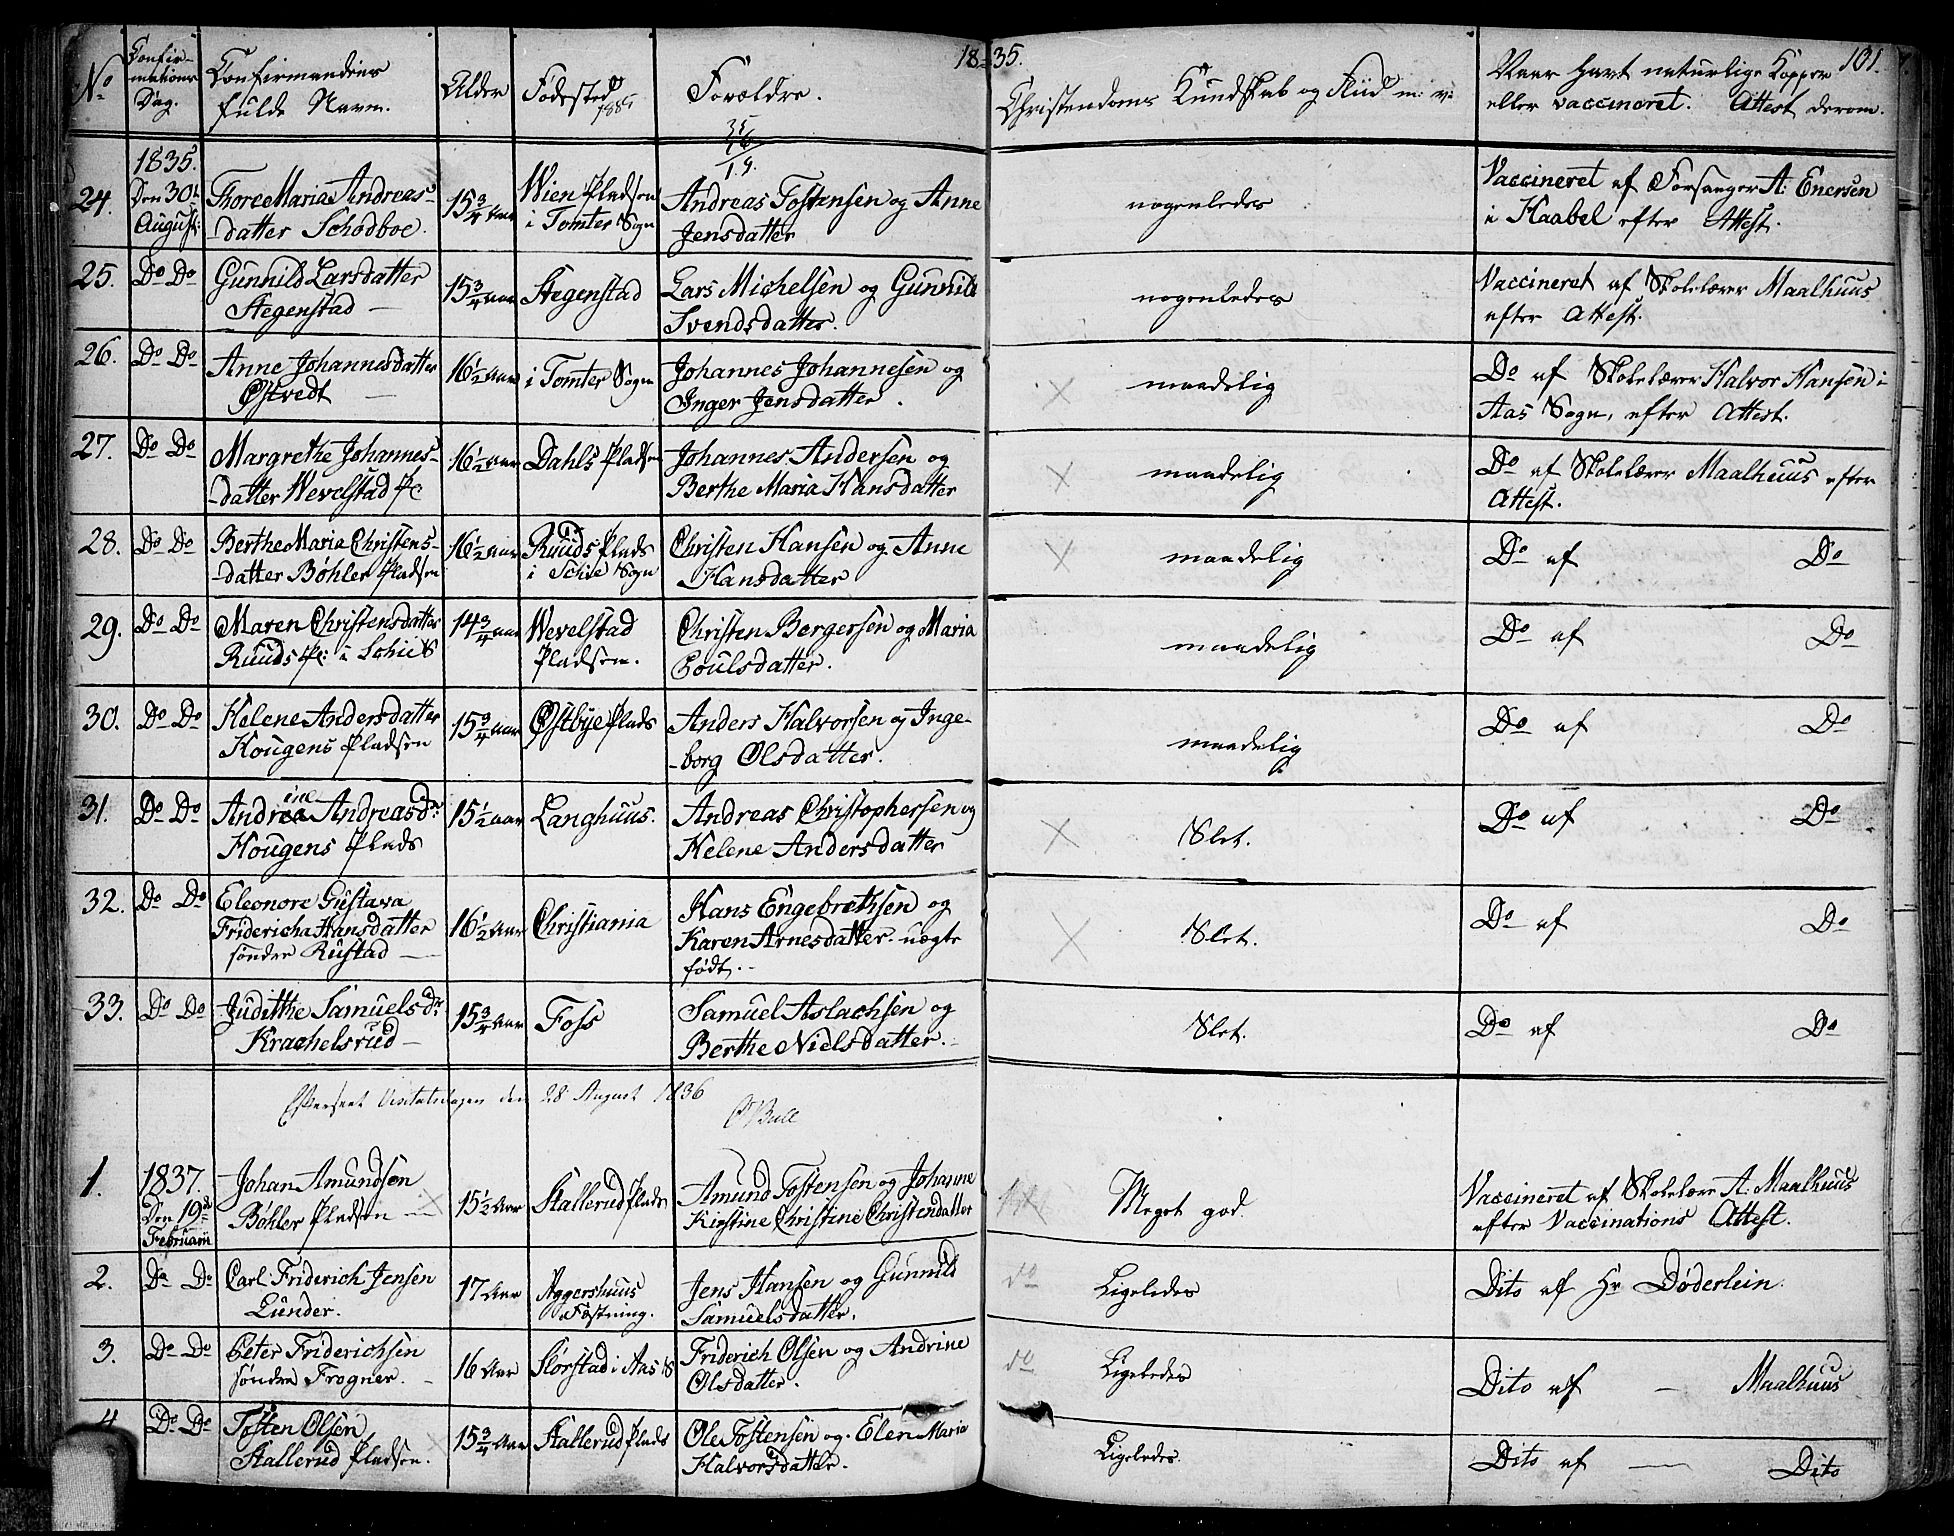 18 35.
101.
No
Confir-
mations
Dag.
Confirmandens
fulde Navn.
Alder
Fødested
Forældre.
Christendoms Kundskab og Fliid m: v:
Naar havt naturlige Kopper
eller vaccineret. Attest derom.
24.
1835.
Den 30te
August.
Thore Maria Andreas-
datter Schodboe.
15 3/4 Aar
Wien Pladsen
i Tomter Sogn
35
16
19.
Andreas Tostensen og Anne
Jensdatter
nogenledes
Vaccineret af Forsanger A: Enersen
i Haabel efter Attest.
25.
Do Do
Gunnild Larsdatter
Stegenstad —
15 3/4 aar
Stegenstad
Lars Michelsen og Gunnild
Svendsdatter.
nogenledes
Vaccineret af Skolelærer Maalhuus
efter Attest.
26.
Do Do
Anne Johannesdatter
Østvedt —
16 1/2 Aar
i Tomter Sogn
Johannes Johannesen og
Inger Jensdatter.
maadelig
Do af Skolelærer Halvor Hansen i
Aas Sogn, efter Attest.
27.
Do Do
Margrethe Johannes-
-datter Wevelstad Pl:
16 1/2 Aar
Dahls Pladsen
Johannes Andersen og
Berthe Maria Hansdatter
maadelig
Do af Skolelærer Maalhuus efter
Attest.
28.
Do Do
Berthe Maria Christens-
-datter Bøhler Pladsen
16 1/2 aar
Ruuds Plads
i Schie Sogn
Christen Hansen og Anne
Hansdatter
maadelig
Do af Do
29.
Do Do
Maren Christensdatter
Ruuds Pl: i Schie S
14 3/4 aar
Wevelstad
Pladsen.
Christen Bergersen og Maria
Poulsdatter.
maadelig
Do af Do
30.
Do Do
Helene Andersdatter
Hougens Pladsen
15 3/4 aar
Østbye Plads
Anders Halvorsen og Inge-
-borg Olsdatter.
maadelig
Do af Do
31.
Do Do
ine
Andrea Andreasdr
Hougens Plads
15 1/2 aar
Langhuus.
Andreas Christophersen og
Helene Andersdatter
Slet.
Do af Do
32.
Do Do
Eleonore Gustava
Fridericha Hansdatter
søndre Rustad —
16 1/2 Aar
Christiania
Hans Engebrethsen og
Karen Arnesdatter. uægte
født.
Slet.
Do af Do
33.
Do Do
Judithe Samuelsdr
Krachelsrud —
15 3/4 Aar
Foss
Samuel Aslachsen og
Berthe Nielsdatter.
Slet.
Do af Do
Efterseet Visitatsdagen den 28 August 1836
Bull
1.
1837.
Den 19de
Februarii
Johan Amundsen
Bøhler Pladsen —
15 1/2 Aar
Stallerud Plads
Amund Tostensen og Johanne
Kirstine Christine Christendatter
Meget god.
Vaccineret af Skolelære A: Maalhuus
efter Vaccinations Attest.
2.
Do Do
Carl Friderich Jensen
Lunder.
17 Aar
Aggershuus
Fæstning.
Jens Hansen og Gunnild
Samuelsdatter.
do
Ligeledes
Dito af Hr Døderlein.
3.
Do Do
Peter Friderichsen
søndre Frogner. —
16 Aar
Storstad i Aas S
Friderich Olsen og Andrine
Olsdatter.
do
Ligeledes
Dito af — Maalhuus
4
Do Do
Tosten Olsen
Stallerud Pladsen.
15 3/4 Aar
Stallerud Plads
Ole Tostensen og Elen Maria
Halvorsdatter.
Ligeledes.
Dito af — Dito